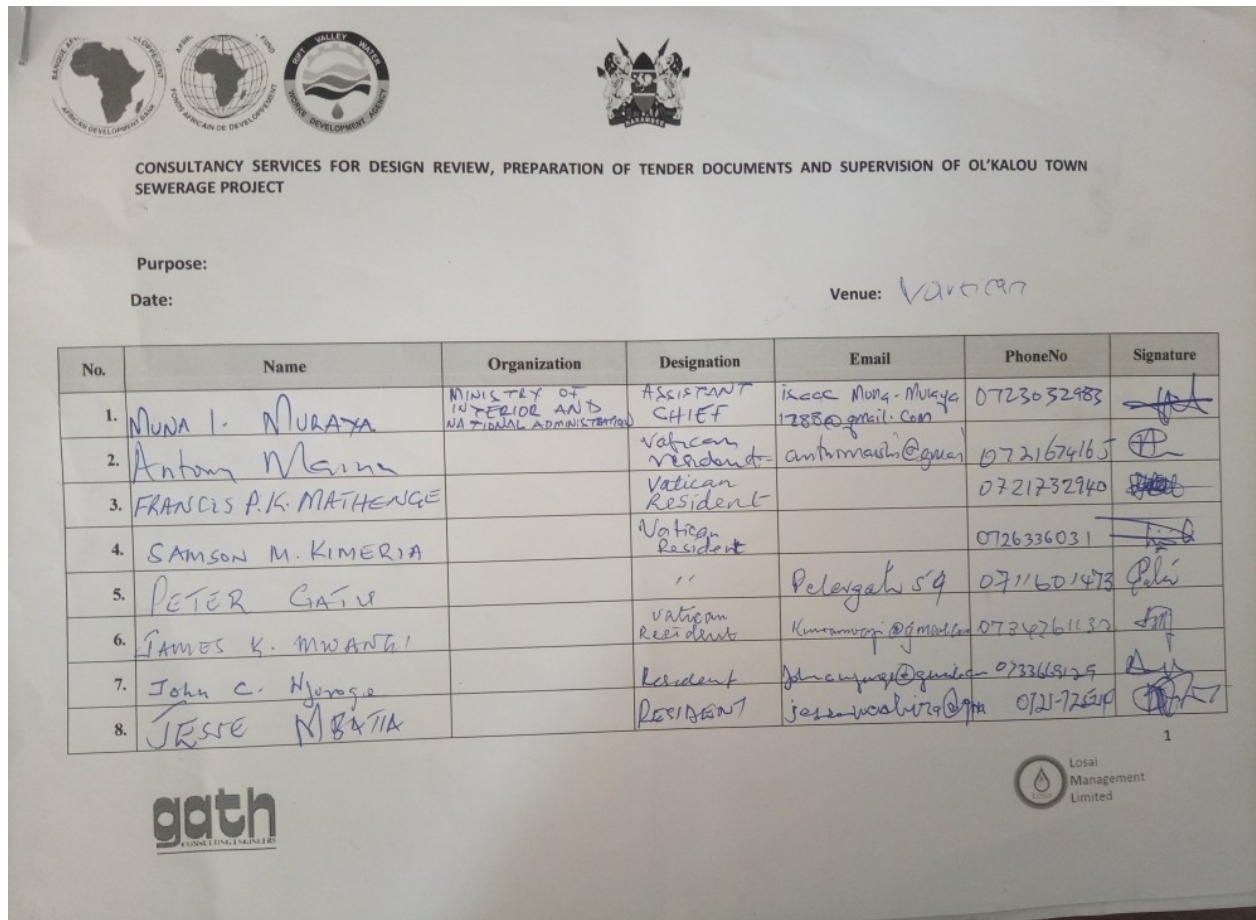 BANQUE AFRICAINE DE DEVELOPPEMENT
AFRICAN DEVELOPMENT BANK
FUND
FONDS AFRICAIN DE DEVELOPPEMENT
RIFT VALLEY WATER
WORKS DEVELOPMENT AGENCY
HARAMBEE
CONSULTANCY SERVICES FOR DESIGN REVIEW, PREPARATION OF TENDER DOCUMENTS AND SUPERVISION OF OL'KALOU TOWN
SEWERAGE PROJECT
Purpose:
Date:
Venue: Vatican
No. Name Organization Designation Email PhoneNo Signature
1. MUNA I. MURAYA MINISTRY OF INTERIOR AND NATIONAL ADMINISTRATION ASSISTANT CHIEF isaac Muna-Muraya 1288@gmail.com 0723032983
2. Antony Vatican resident 0721674165
3. FRANCIS P.K. MATHENGE Vatican Resident 0721732940
4. SAMSON M. KIMERIA Vatican Resident 0726336031
5. PETER GATU " 0711601473
6. JAMES K. MWANGI Vatican Resident
7. John C. Njoroge Resident
8. JESSE MBATIA RESIDENT
1
gath
CONSULTING ENGINEERS
Losai
Management
Limited